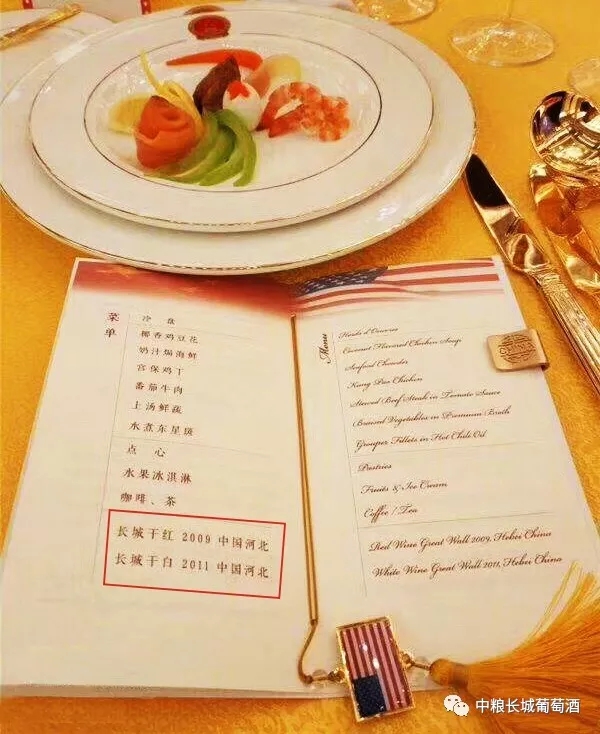 菜单
冷盘
椰香鸡豆花
奶汁焗海鲜
宫保鸡丁
番茄牛肉
上汤鲜蔬
水煮东星斑
点心
水果冰淇淋
咖啡、茶
长城干红 2009 中国河北
长城干白 2011 中国河北
Menu
Horks d'Oeuvres
Coconut Flavored Chicken Soup
Seafood Chowder
Kung Pao Chicken
Stewed Beef Steak in Tomato Sauce
Braised Vegetables in Premium Broth
Grouper Fillets in Hot Chili Oil
Pastries
Fruits & Ice Cream
Coffee / Tea
Red Wine Great Wall 2009, Hebei China
White Wine Great Wall 2011, Hebei China
中粮长城葡萄酒